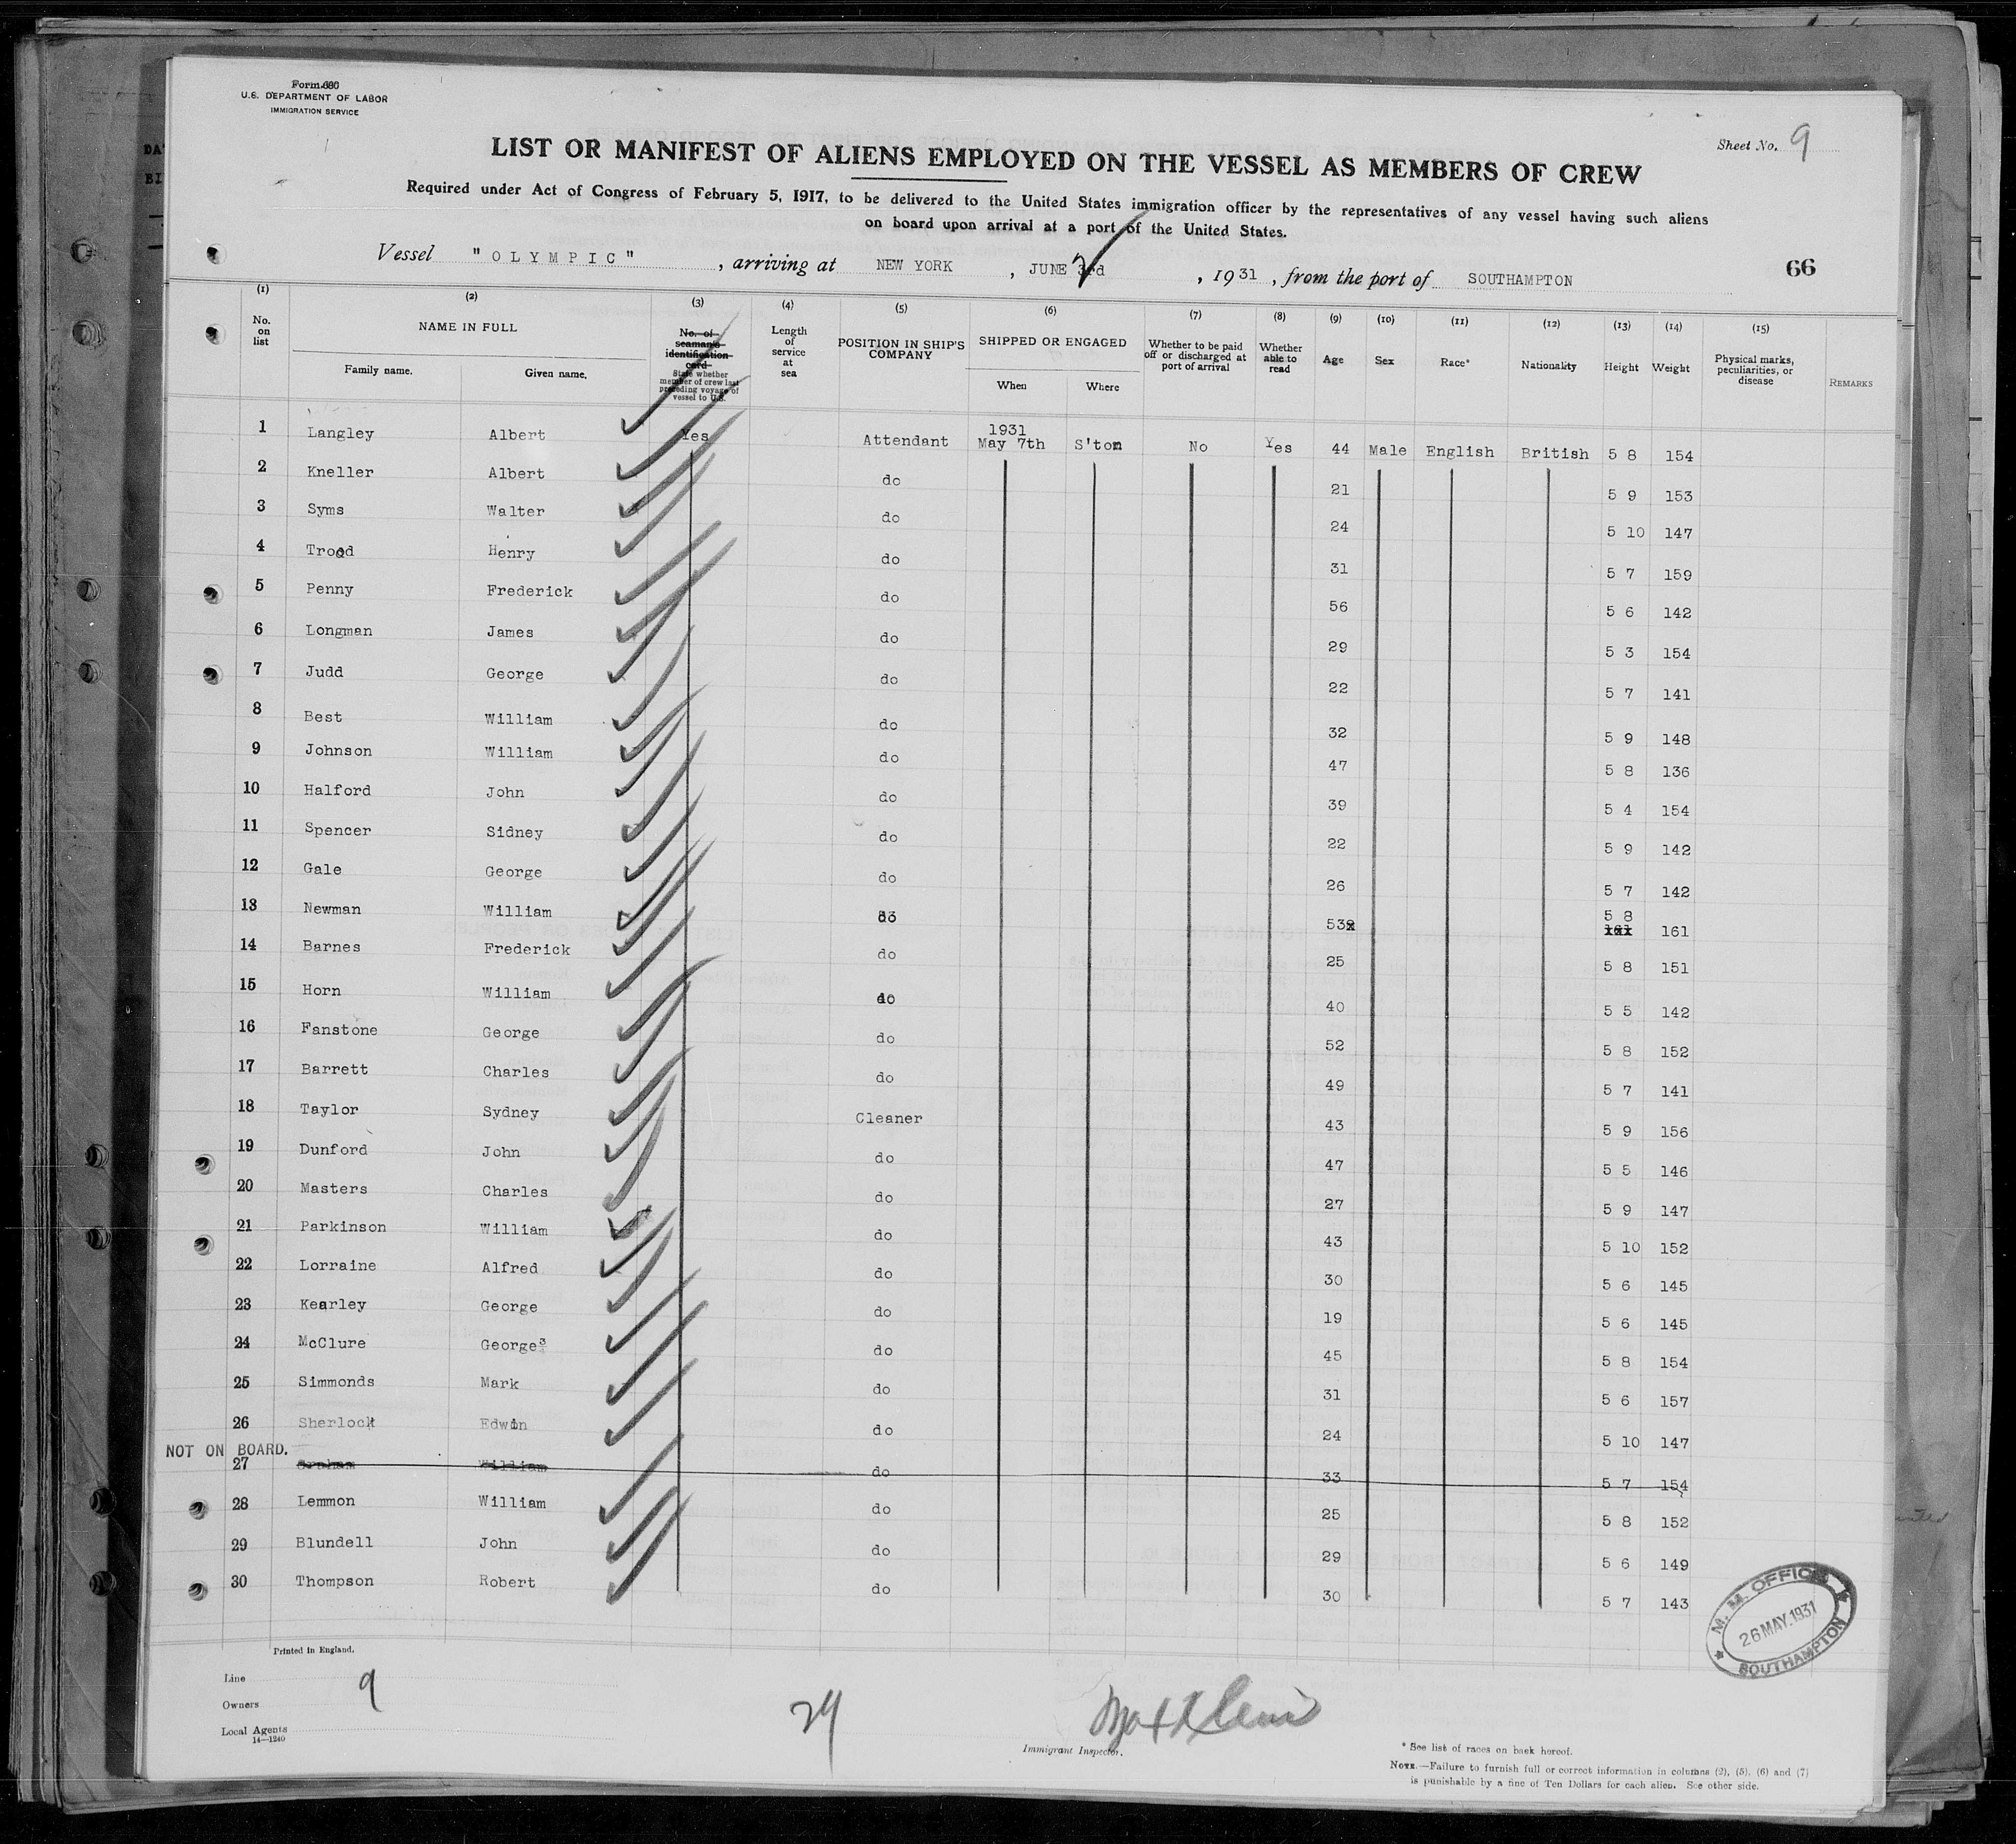 Form 680
U.S. DEPARTMENT OF LABOR
IMMIGRATION SERVICE
Sheet No. 9
LIST OR MANIFEST OF ALIENS EMPLOYED ON THE VESSEL AS MEMBERS OF CREW
Required under Act of Congress of February 5, 1917, to be delivered to the United States immigration officer by the representatives of any vessel having such aliens
on board upon arrival at a port of the United States.
Vessel "OLYMPIC", arriving at NEW YORK, JUNE 3rd, 1931, from the port of SOUTHAMPTON
66
(1) (2) (3) (4) (5) (6) (7) (8) (9) (10) (11) (12) (13) (14) (15)
No. on list NAME IN FULL Family name. Given name. No. of seaman's identification card State whether member of crew last preceding voyage of vessel to U.S. Length of service at sea POSITION IN SHIP'S COMPANY SHIPPED OR ENGAGED When Where Whether to be paid off or discharged at port of arrival Whether able to read Age Sex Race* Nationality Height Weight Physical marks, peculiarities, or disease REMARKS
1 Langley Albert Yes Attendant 1931 May 7th S'ton No Yes 44 Male English British 5 8 154
2 Kneller Albert do 21 5 9 153
3 Syms Walter do 24 5 10 147
4 Trood Henry do 31 5 7 159
5 Penny Frederick do 56 5 6 142
6 Longman James do 29 5 3 154
7 Judd George do 22 5 7 141
8 Best William do 32 5 9 148
9 Johnson William do 47 5 8 136
10 Halford John do 39 5 4 154
11 Spencer Sidney do 22 5 9 142
12 Gale George do 26 5 7 142
13 Newman William do 53 5 8 161
14 Barnes Frederick do 25 5 8 151
15 Horn William do 40 5 5 142
16 Fanstone George do 52 5 8 152
17 Barrett Charles do 49 5 7 141
18 Taylor Sydney Cleaner 43 5 9 156
19 Dunford John do 47 5 5 146
20 Masters Charles do 27 5 9 147
21 Parkinson William do 43 5 10 152
22 Lorraine Alfred do 30 5 6 145
23 Kearley George do 19 5 6 145
24 McClure George do 45 5 8 154
25 Simmonds Mark do 31 5 6 157
26 Sherlock Edwin do 24 5 10 147
NOT ON BOARD.
27 Graham William do 33 5 7 154
28 Lemmon William do 25 5 8 152
29 Blundell John do 29 5 6 149
30 Thompson Robert do 30 5 7 143
M. M. OFFICE
26 MAY.1931
SOUTHAMPTON
Printed in England.
Line
Owners
Local Agents
14—1240
9
29
Immigrant Inspector.
* See list of races on back hereof.
NOTE.—Failure to furnish full or correct information in columns (2), (5), (6) and (7)
is punishable by a fine of Ten Dollars for each alien. See other side.